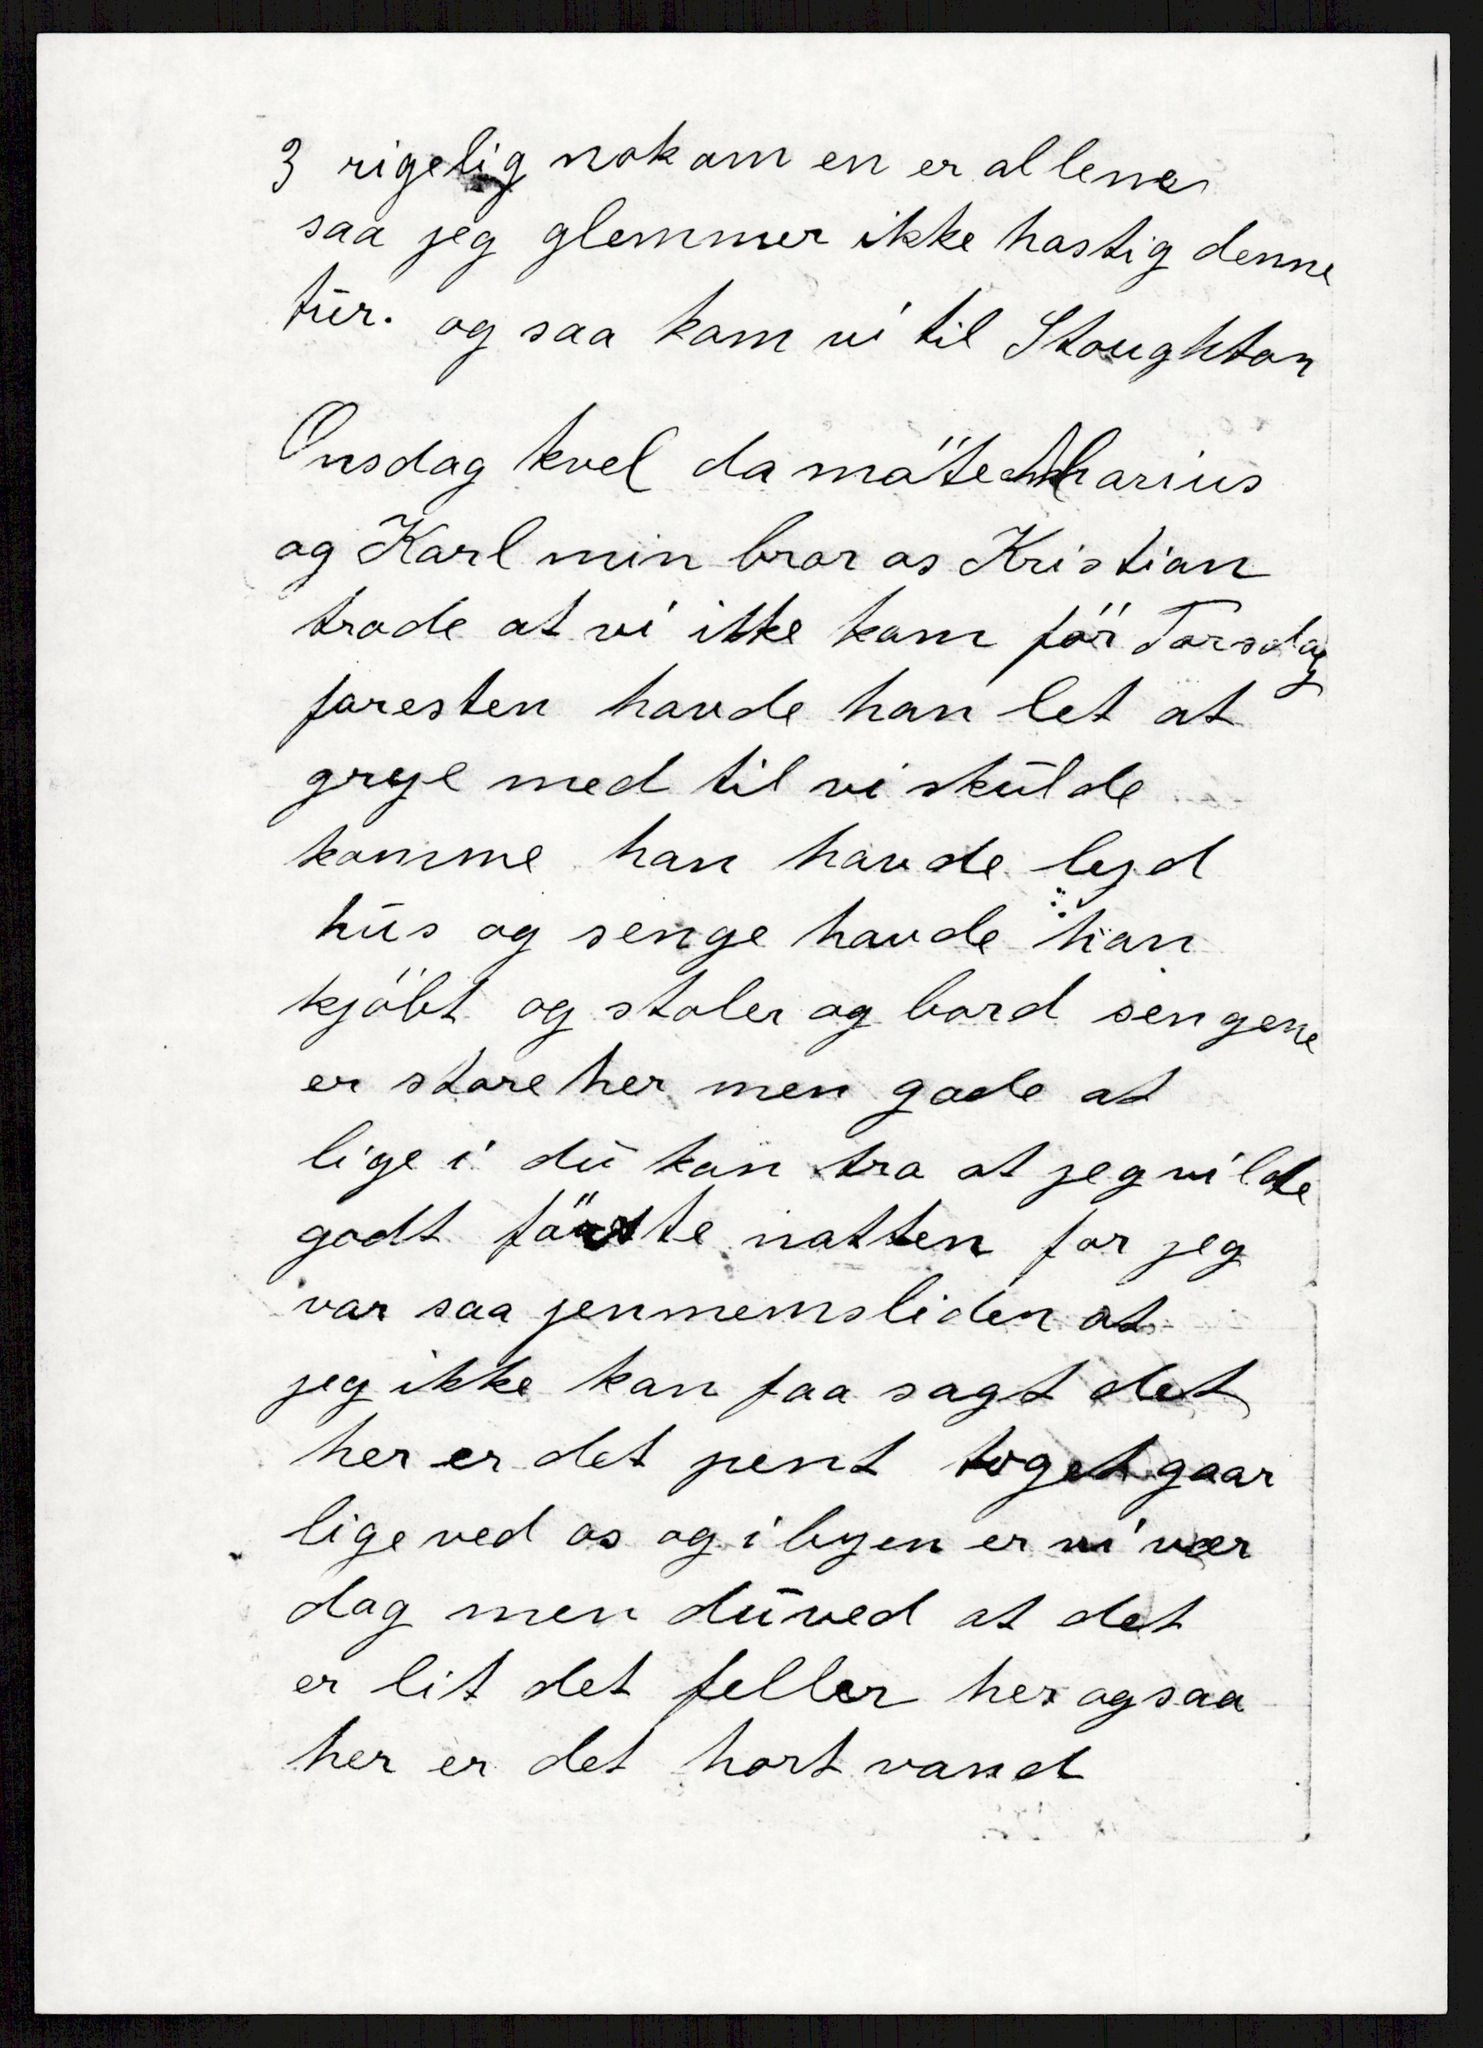 3 rigelig nok om en er allene
saa jeg glemmer ikke hastig denne
tūr. og saa kom vi til Stoughton
Onsdag kvel da mötte Marius
og Karl min bror os Kristian
trode at vi ikke kom för Torsdag
foresten havde han let at
grye med til vi skūlde
komme han havde lejd
hūs og senge havde han
kjöbt og stoler og bord sengene
er store her men gode at
lige i dū kan tro at jeg vilde
godt förste natten for jeg
var saa jenmemsliden at
jeg ikke kan faa sagt det
her er det pent toget gaar
lige ved os og i byen er vi vær
dag men dū ved at det
er lit det feller her ogsaa
her er det hort vand